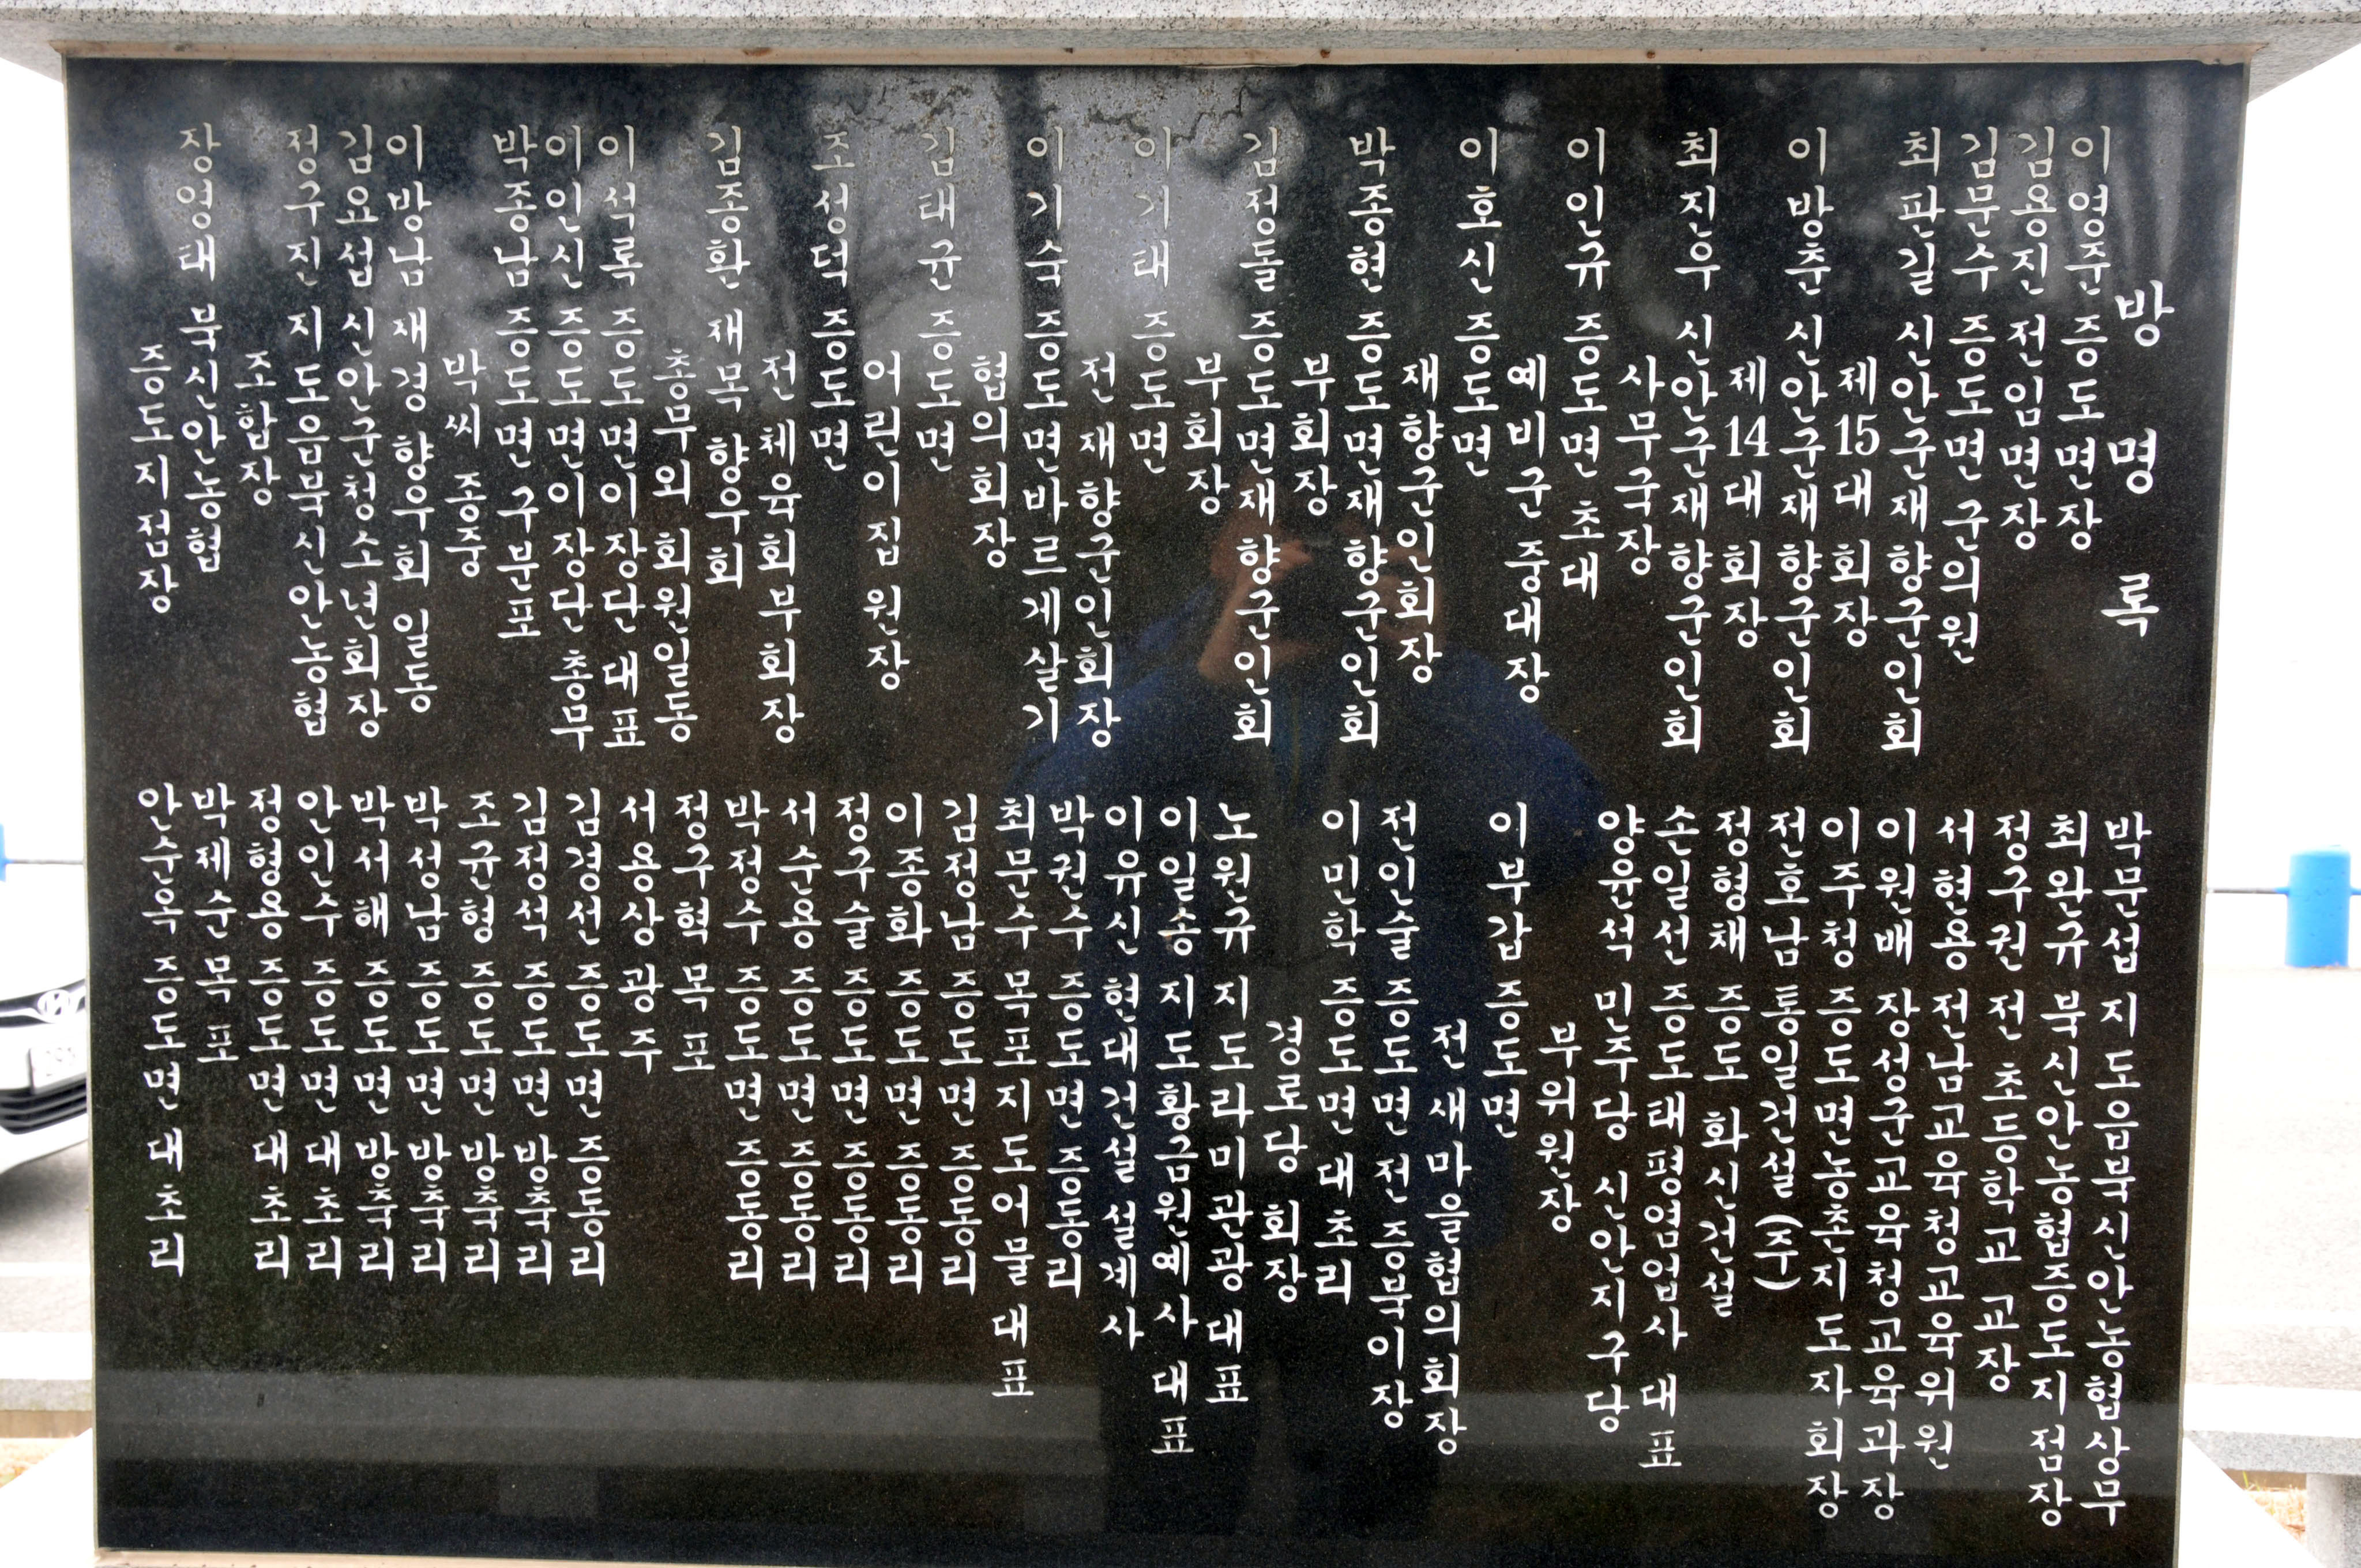 방명록
이영준 증도면장
김용진 전임면장
김문수 증도면 군의원
최판길 신안군재향군인회
제15대 회장
이방춘 신안군재향군인회
제14대 회장
최진우 신안군재향군인회
사무국장
이인규 증도면 초대
예비군 중대장
이호신 증도면
재향군인회장
박종현 증도면재향군인회
부회장
김정돌 증도면재향군인회
부회장
이기태 증도면
전 재향군인회장
이기숙 증도면바르게살기
협의회장
김태균 증도면
어린이집 원장
조성덕 증도면
전 체육회부회장
김종환 재목 향우회
총무외 회원일동
이석록 증도면이장단 대표
이인신 증도면이장단 총무
박종남 증도면 구분포
박씨 종중
이방남 재경 향우회 일동
김요섭 신안군청소년회장
정구진 지도읍북신안농협
조합장
장영태 북신안농협
증도지점장
박문섭 지도읍북신안농협상무
최완규 북신안농협증도지점장
정구권 전 초등학교 교장
서현용 전남교육청교육위원
이원배 장성군교육청교육과장
이주청 증도면농촌지도자회장
전호남 통일건설(주)
정형채 증도 화신건설
손일선 증도태평염업사 대표
양윤석 민주당 신안지구당
부위원장
이부갑 증도면
전새마을협의회장
전인술 증도면 전 증북이장
이민학 증도면 대초리
경로당 회장
노원규 지도라미관광대표
이일송 지도황금원예사 대표
이유신 현대건설 설계사
박권수 증도면 증동리
최문수 목포지도어물 대표
김정남 증도면 증동리
이종화 증도면 증동리
정구술 증도면 증동리
서수용 증도면 증동리
박정수 증도면 증동리
정구혁 목포
서용상 광주
김경선 증도면 증동리
김정석 증도면 방축리
조균형 증도면 방축리
박성남 증도면 방축리
박서해 증도면 방축리
안인수 증도면 대초리
정형용 증도면 대초리
박제순 목포
안수옥 증도면 대초리